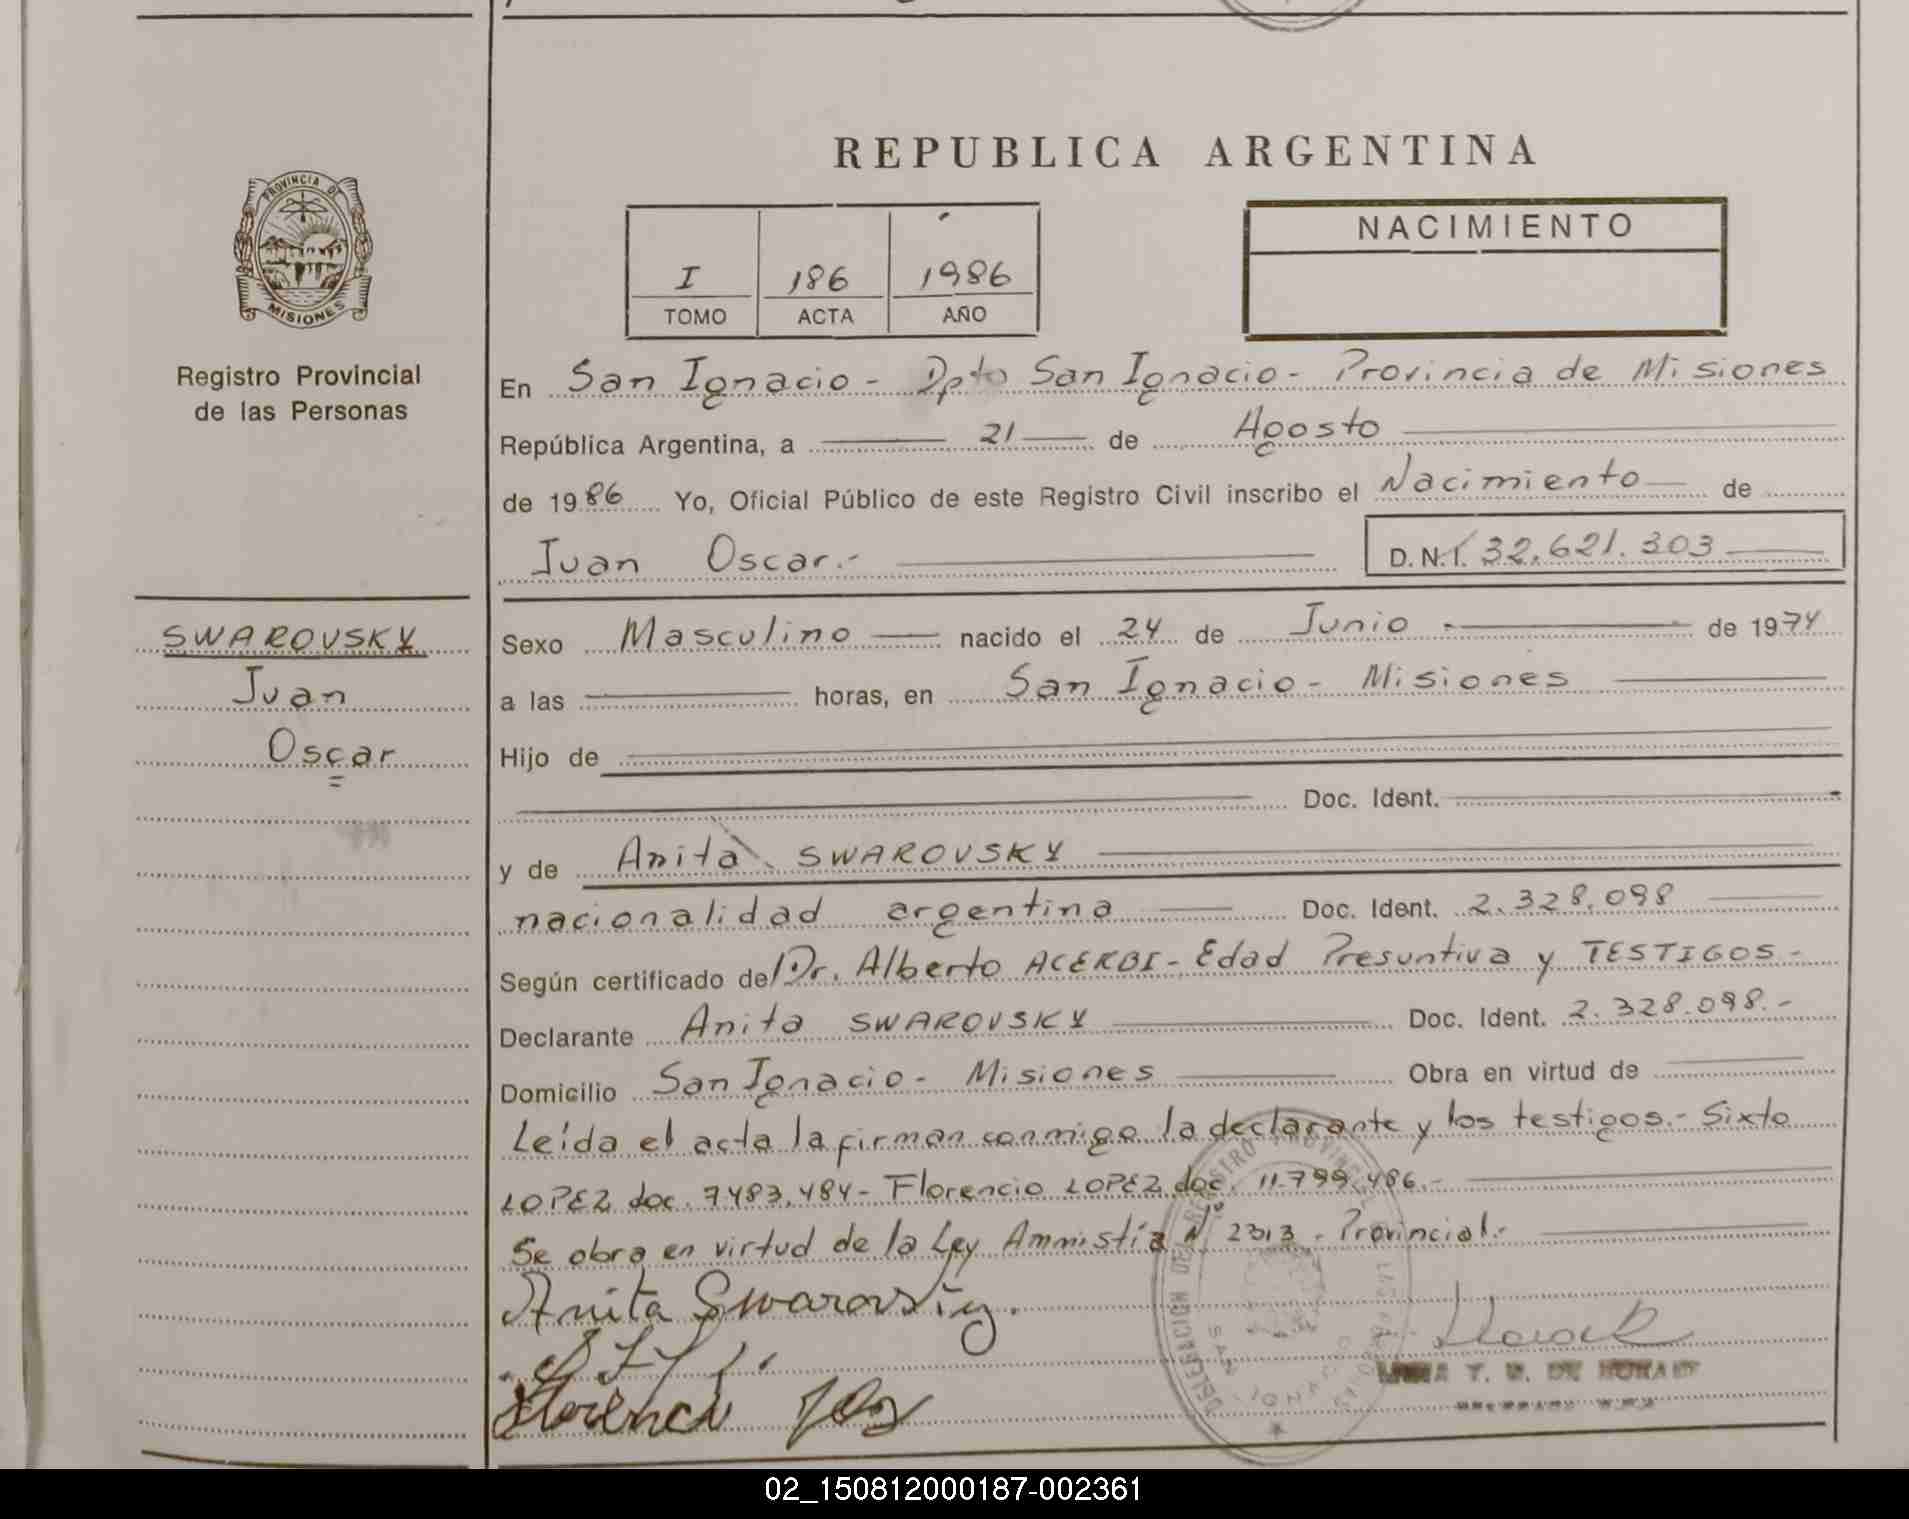 REPUBLICA ARGENTINA
PROVINCIA DE
MISIONES
Registro Provincial
de las Personas
I 186 1986
TOMO ACTA AÑO
NACIMIENTO
En San Ignacio - Dpto San Ignacio - Provincia de Misiones
República Argentina, a 21 de Agosto
de 1986 Yo, Oficial Público de este Registro Civil inscribo el Nacimiento de
Juan Oscar.- D.N.I. 32.621.303
SWAROVSKY
Juan
Oscar
Sexo Masculino nacido el 24 de Junio de 1974
a las horas, en San Ignacio - Misiones
Hijo de
Doc. Ident.
y de Anita SWAROVSKY
nacionalidad argentina Doc. Ident. 2.328.098
Según certificado del Dr. Alberto ACERBI - Edad Presuntiva y TESTIGOS -
Declarante Anita SWAROVSKY Doc. Ident. 2.328.098.-
Domicilio San Ignacio - Misiones Obra en virtud de
Leída el acta la firman conmigo la declarante y los testigos.- Sixto
LOPEZ doc. 7483.484 - Florencio LOPEZ doc. 11.799.486.-
Se obra en virtud de la Ley Amnistía Nº 2313 - Provincial.-
Anita Swarovsky.
DELEGACION DEL REGISTRO PROVINCIAL DE LAS PERSONAS
SAN IGNACIO
02_150812000187-002361